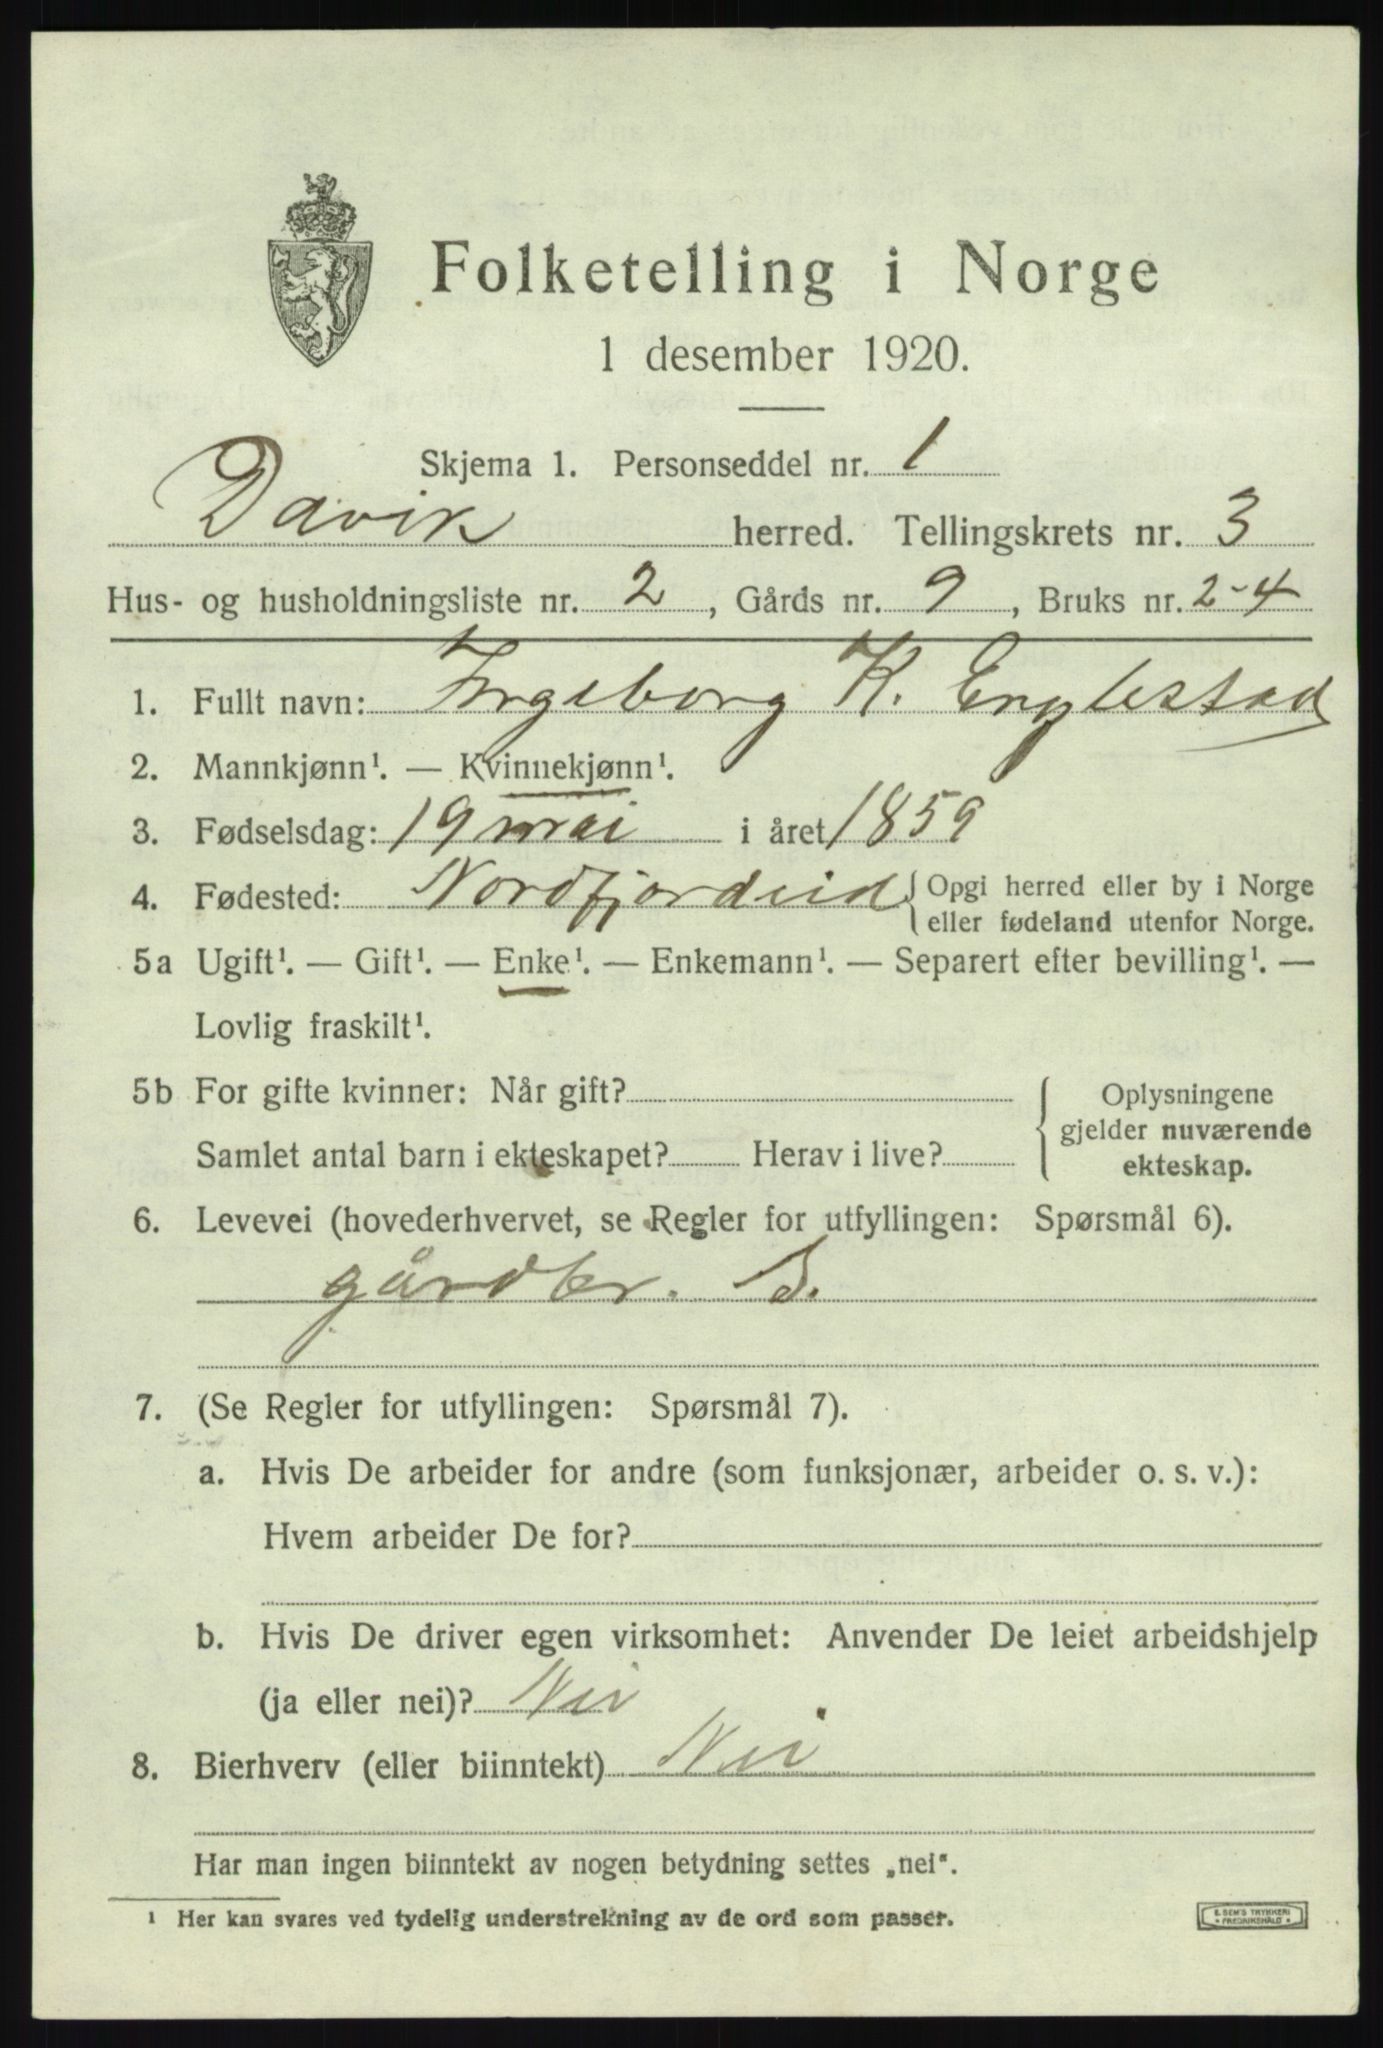 Folketelling i Norge
1 desember 1920.
Skjema 1. Personseddel nr. 1
Davik herred. Tellingskrets nr. 3
Hus- og husholdningsliste nr. 2, Gårds nr. 9, Bruks nr. 2-4
1. Fullt navn: Ingeborg K. Englestad
2. Mannkjønn¹. — Kvinnekjønn¹.
3. Fødselsdag: 19 mai i året 1859
4. Fødested: Nordfjordeid { Opgi herred eller by i Norge
eller fødeland utenfor Norge.
5a Ugift¹. — Gift¹. — Enke¹. — Enkemann¹. — Separert efter bevilling¹. —
Lovlig fraskilt¹.
5b For gifte kvinner: Når gift?
Samlet antal barn i ekteskapet? Herav i live?
{ Oplysningene
gjelder nuværende
ekteskap.
6. Levevei (hovederhvervet, se Regler for utfyllingen: Spørsmål 6).
gårdbr. S.
7. (Se Regler for utfyllingen: Spørsmål 7).
a. Hvis De arbeider for andre (som funksjonær, arbeider o. s. v.):
Hvem arbeider De for?
b. Hvis De driver egen virksomhet: Anvender De leiet arbeidshjelp
(ja eller nei)? Nei
8. Bierhverv (eller biinntekt) Nei
Har man ingen biinntekt av nogen betydning settes „nei".
¹ Her kan svares ved tydelig understrekning av de ord som passer.
E. SEM'S TRYKKERI
* FREDRIKSHALD *